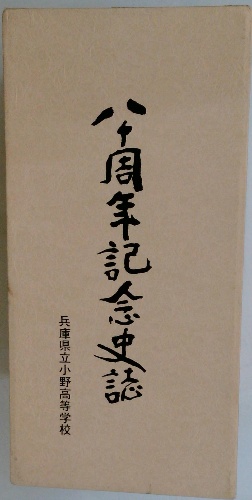 八十周年記念史誌
兵庫県立小野高等学校